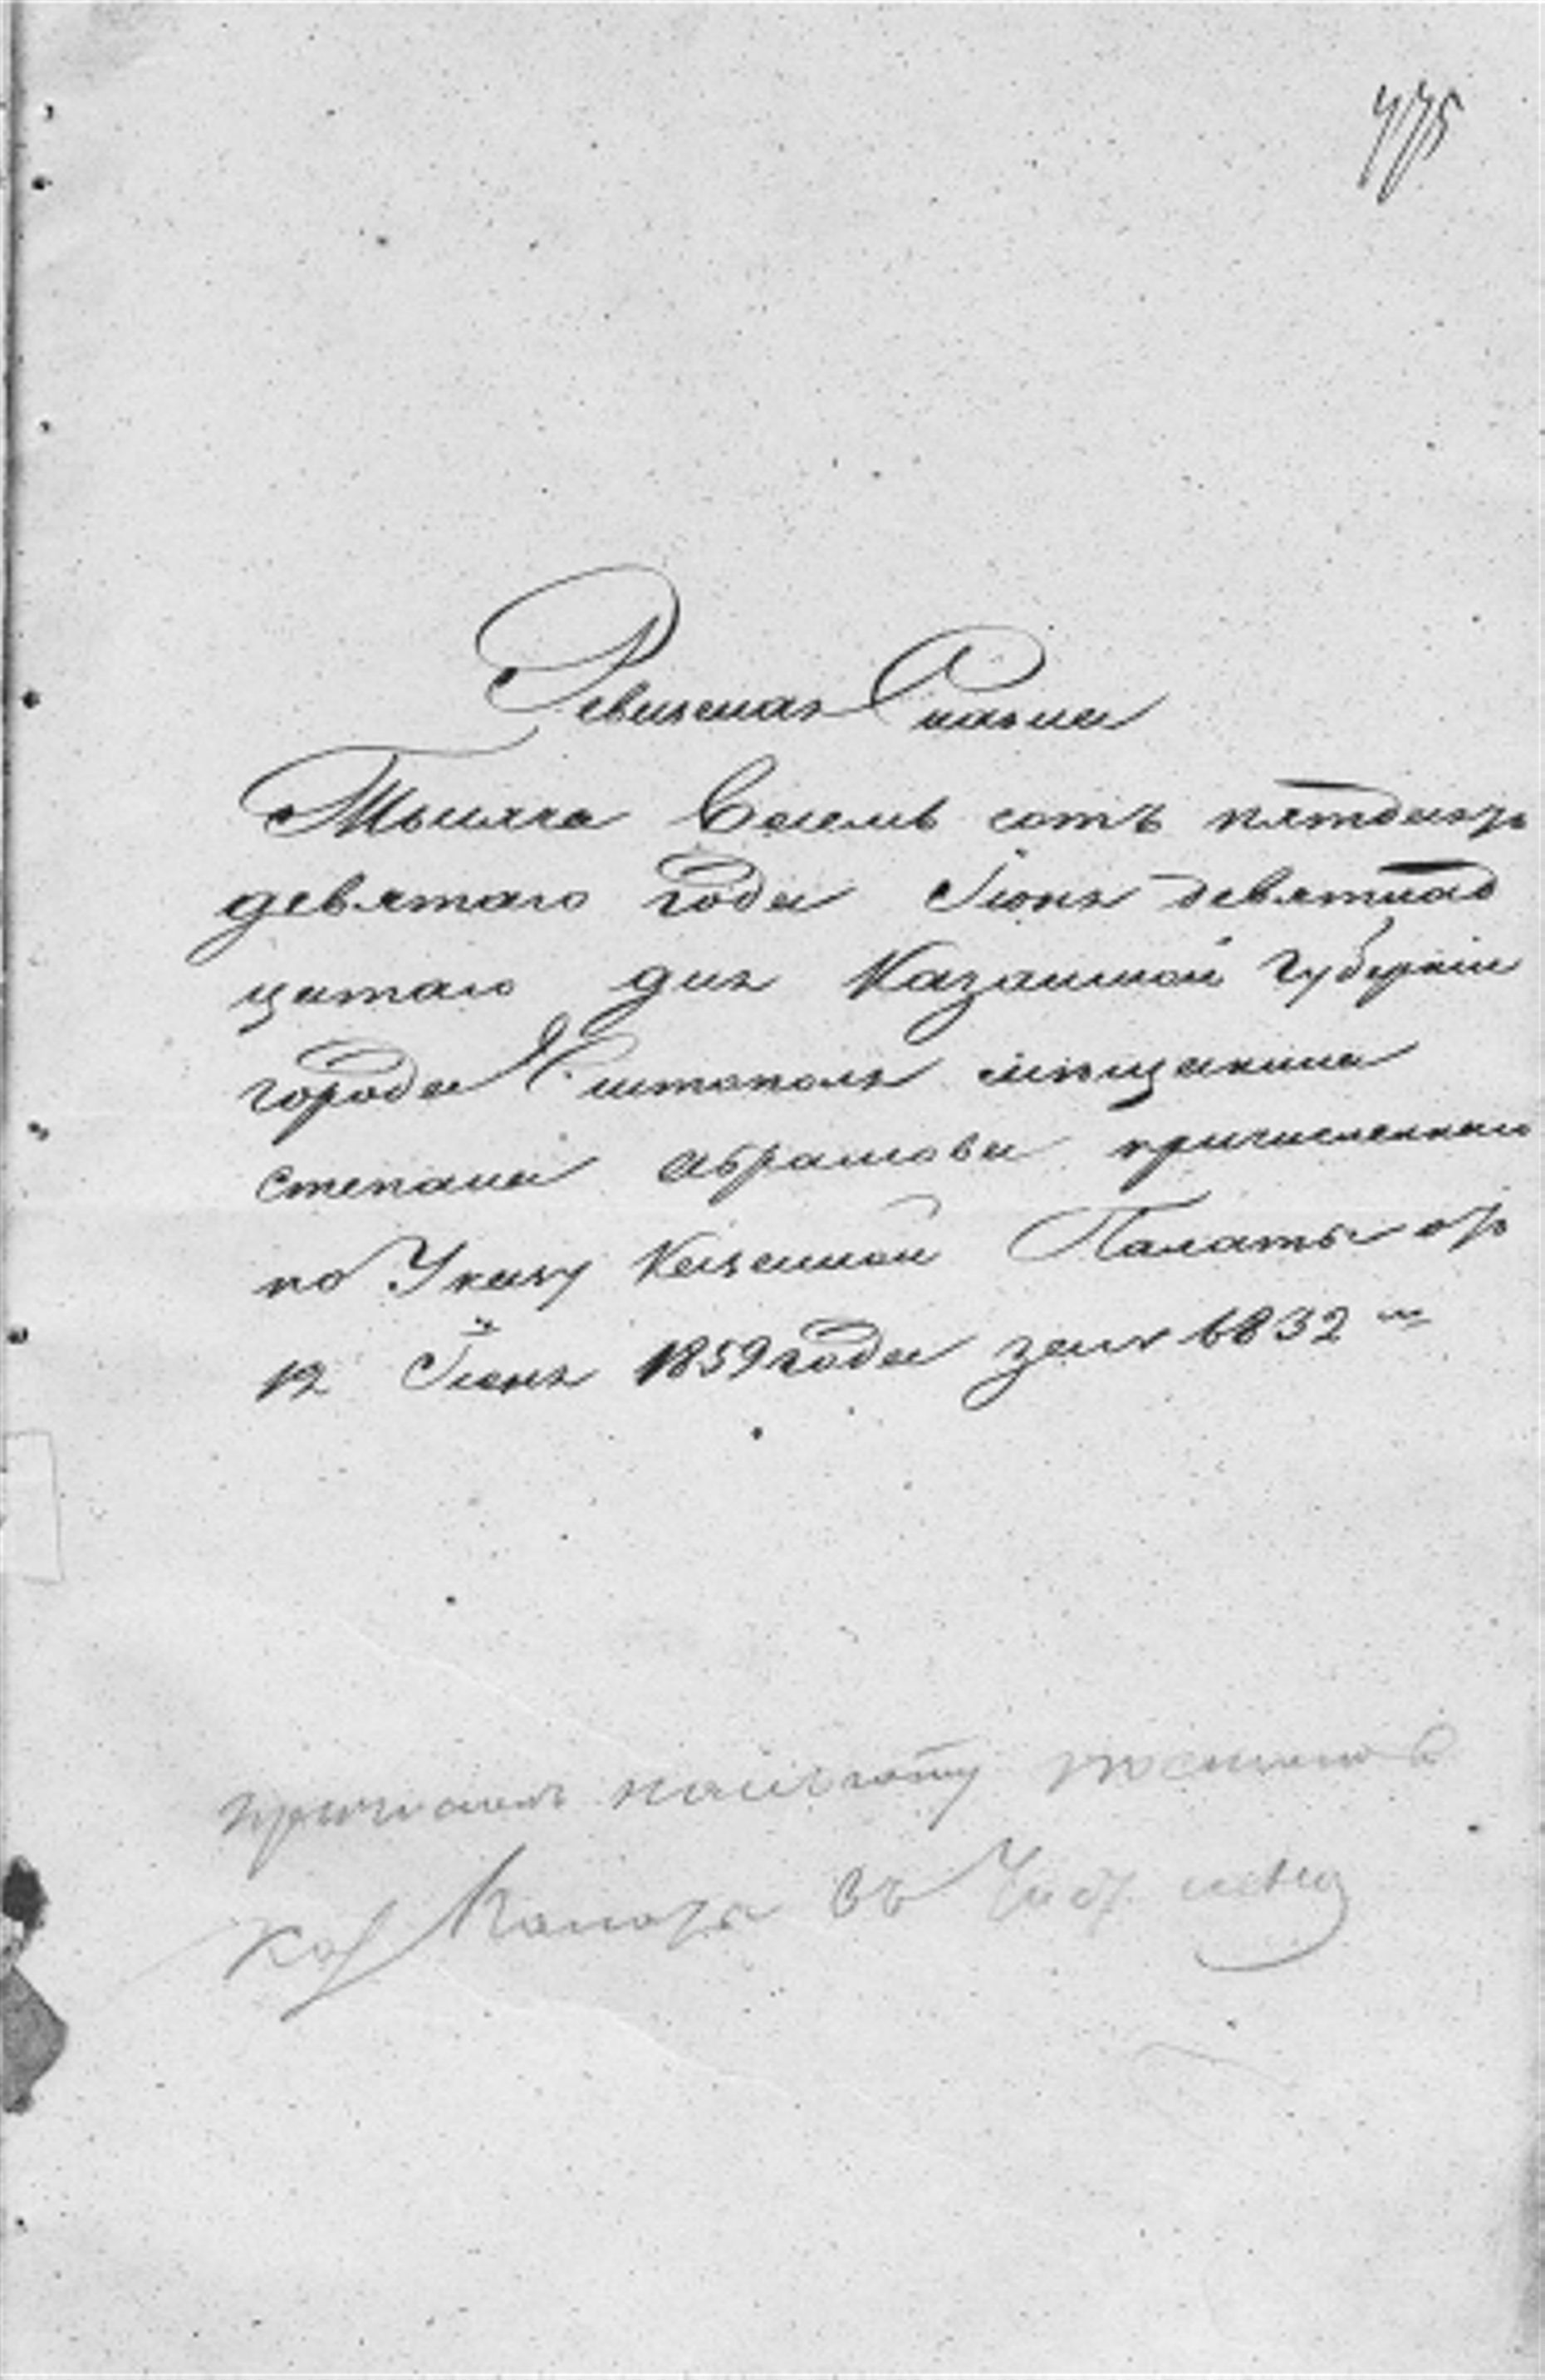 475
Ревизская Сказка
Тысяча Восемь сотъ пятдесятъ
девятаго года Іюня девятнад
цатаго дня Казанской Губерніи
города Чистополя мѣщанина
степана абрамова причисленнаго
по Указу Казенной Палаты отъ
12 Іюня 1859 года за № 6832 м
причисленъ
въ Чист. мѣщ